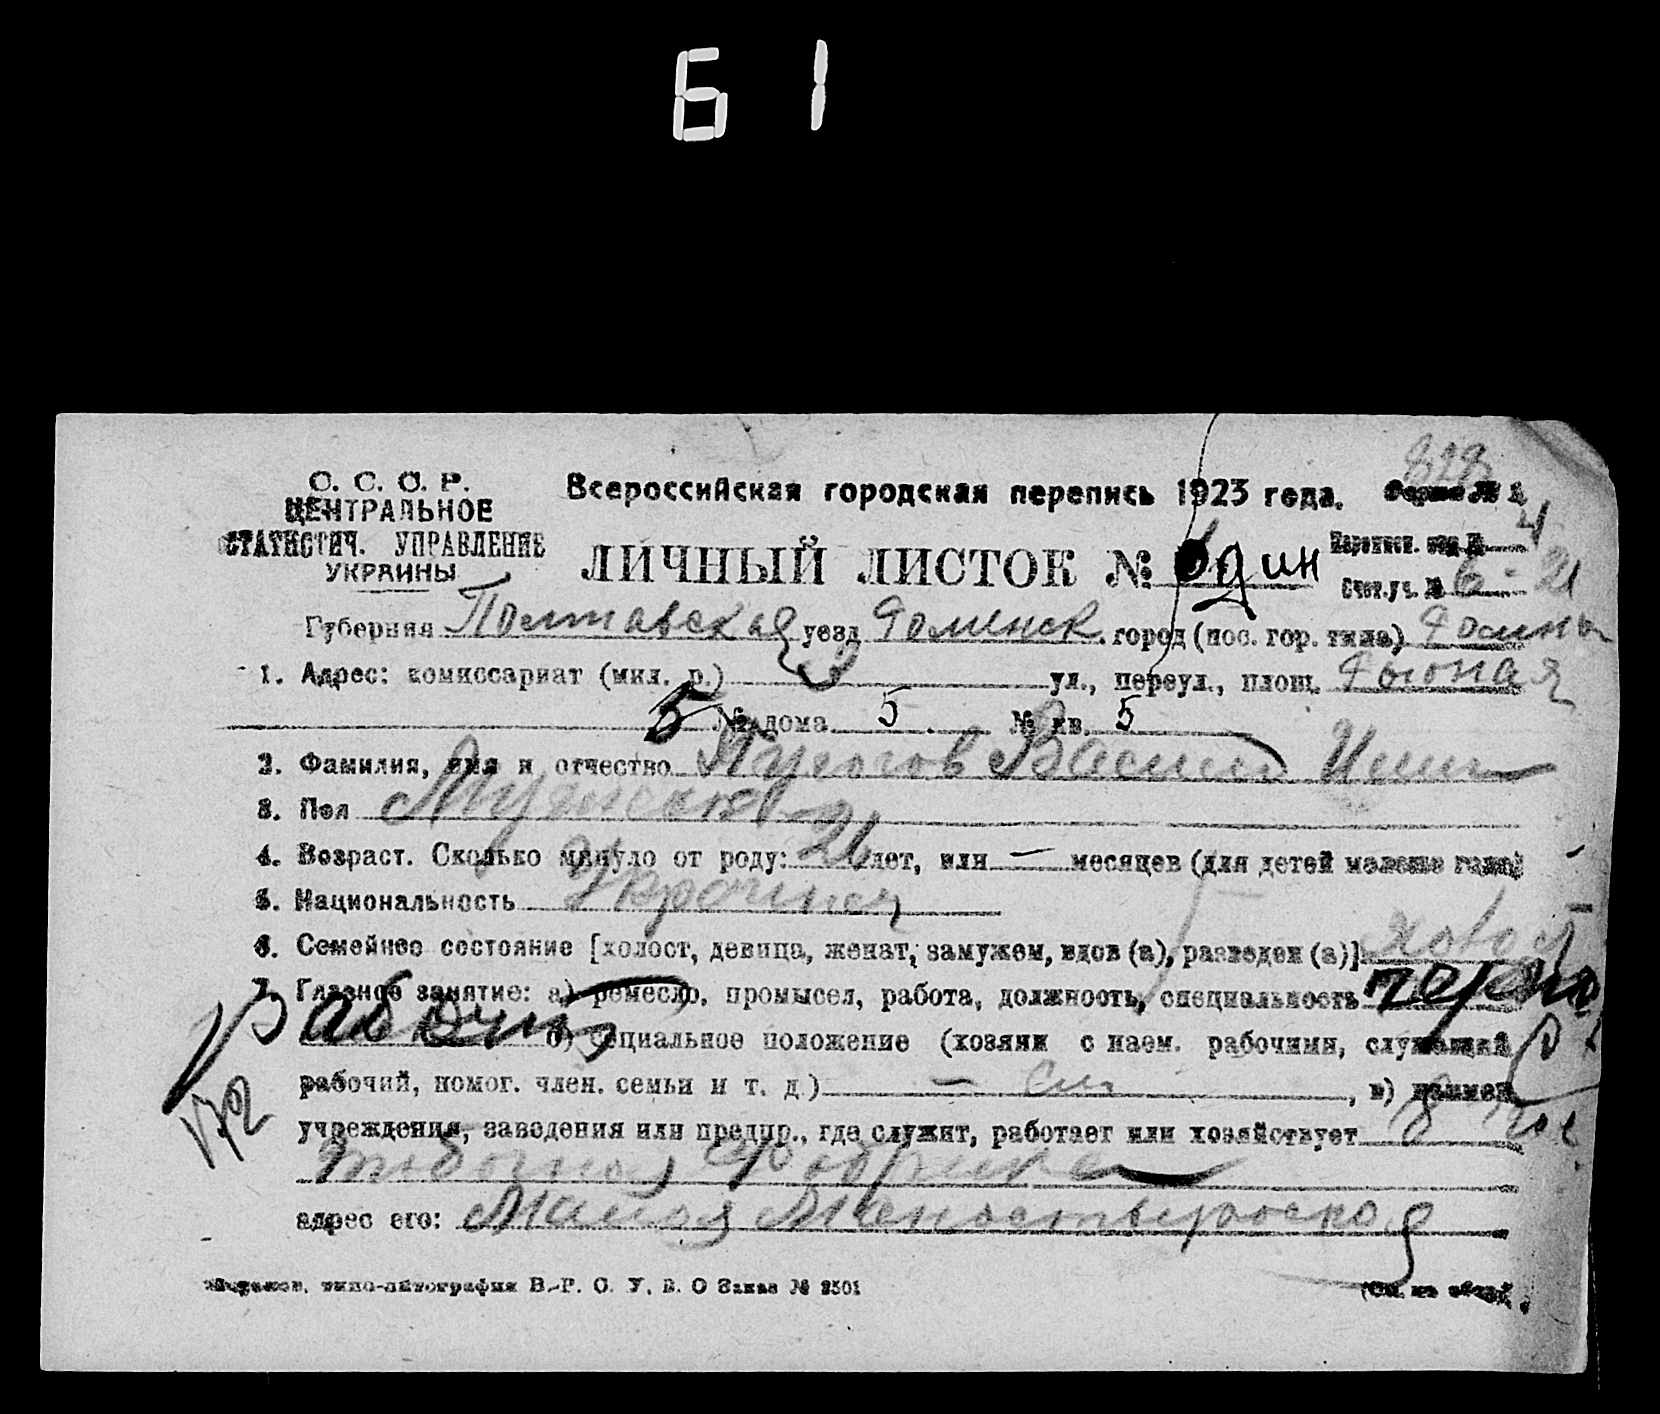 61
828
С. С. С. Р.
ЦЕНТРАЛЬНОЕ
СТАТИСТИЧ. УПРАВЛЕНИЕ
УКРАИНЫ
Всероссийская городская перепись 1923 года. Форма № 1
ЛИЧНЫЙ ЛИСТОК № Один
4
Счет. уч. № 6 - 21
Губерния Полтавская уезд Роменск. город (пос. гор. типа) Ромны
1. Адрес: комиссариат (мил. р.) ул., переул., площ.
5 № дома 5 № кв. 5
2. Фамилия, имя и отчество Василь
3. Пол Мужской
4. Возраст. Сколько минуло от роду: 21 лет, или — месяцев (для детей моложе года)
5. Национальность
6. Семейное состояние [холост, девица, женат, замужем, вдов (а), разведен (а)] холост
7. Главное занятие: а) ремесло, промысел, работа, должность, специальность
Рабочий б) социальное положение (хозяин с наем. рабочими, служащий
рабочий, помог. член. семьи и т. д.) — , в) наимен.
учреждения, заведения или предпр., где служит, работает или хозяйствует
Табачная Фабрика
адрес его: Малая Монастырская
типо-литография В.-Р. С. У. В. О Заказ № 2501
(См. на обор.)